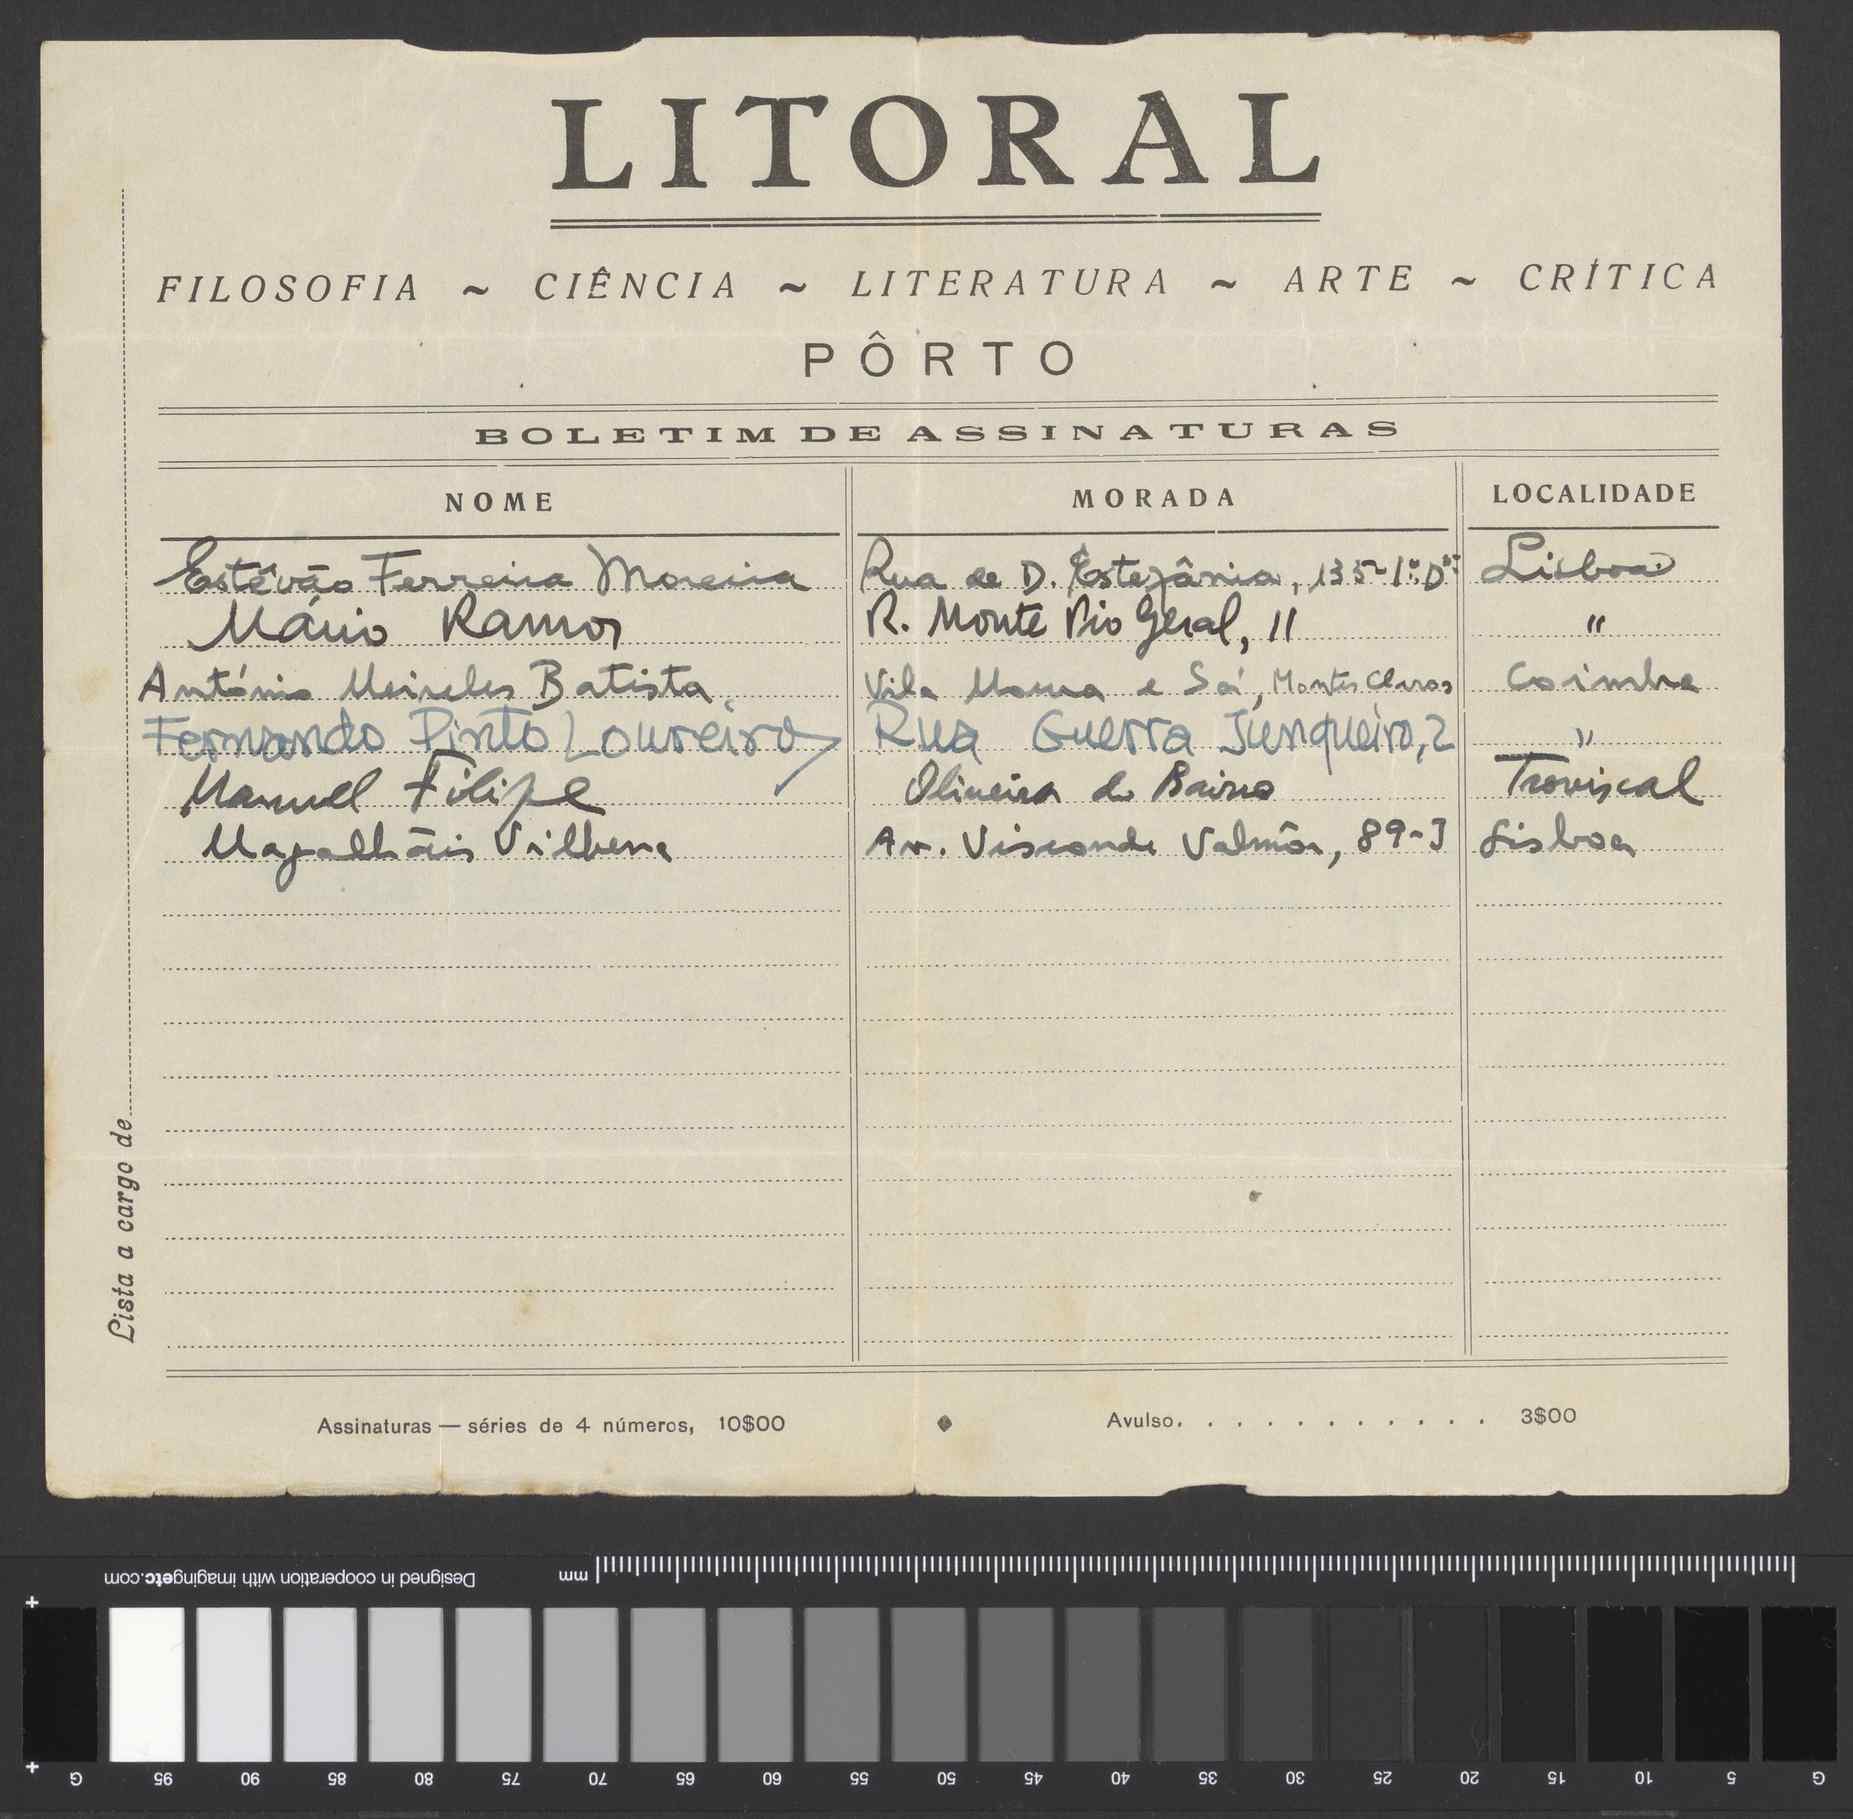 LITORAL
FILOSOFIA ~ CIÊNCIA ~ LITERATURA ~ ARTE ~ CRÍTICA
PÔRTO
BOLETIM DE ASSINATURAS
NOME MORADA LOCALIDADE
Estêvão Ferreira Moreira Rua de D. Estefânia, 135-1º. Dº. Lisboa
Mário Ramos R. Monte Pio Geral, 11 "
António Meireles Batista Vila Moura e Sá, Montes Claros Coimbra
Fernando Pinto Loureiro Rua Guerra Junqueiro, 2 "
Manuel Filipe Oliveira do Bairro Troviscal
Magalhãis Vilhena Av. Visconde Valmôr, 89-3 Lisboa
Lista a cargo de
Assinaturas — séries de 4 números, 10$00 Avulso. . . . . . . . . . . 3$00
Designed in cooperation with imagingetc.com mm
G 95 90 85 80 75 70 65 60 55 50 45 40 35 30 25 20 15 10 5 G